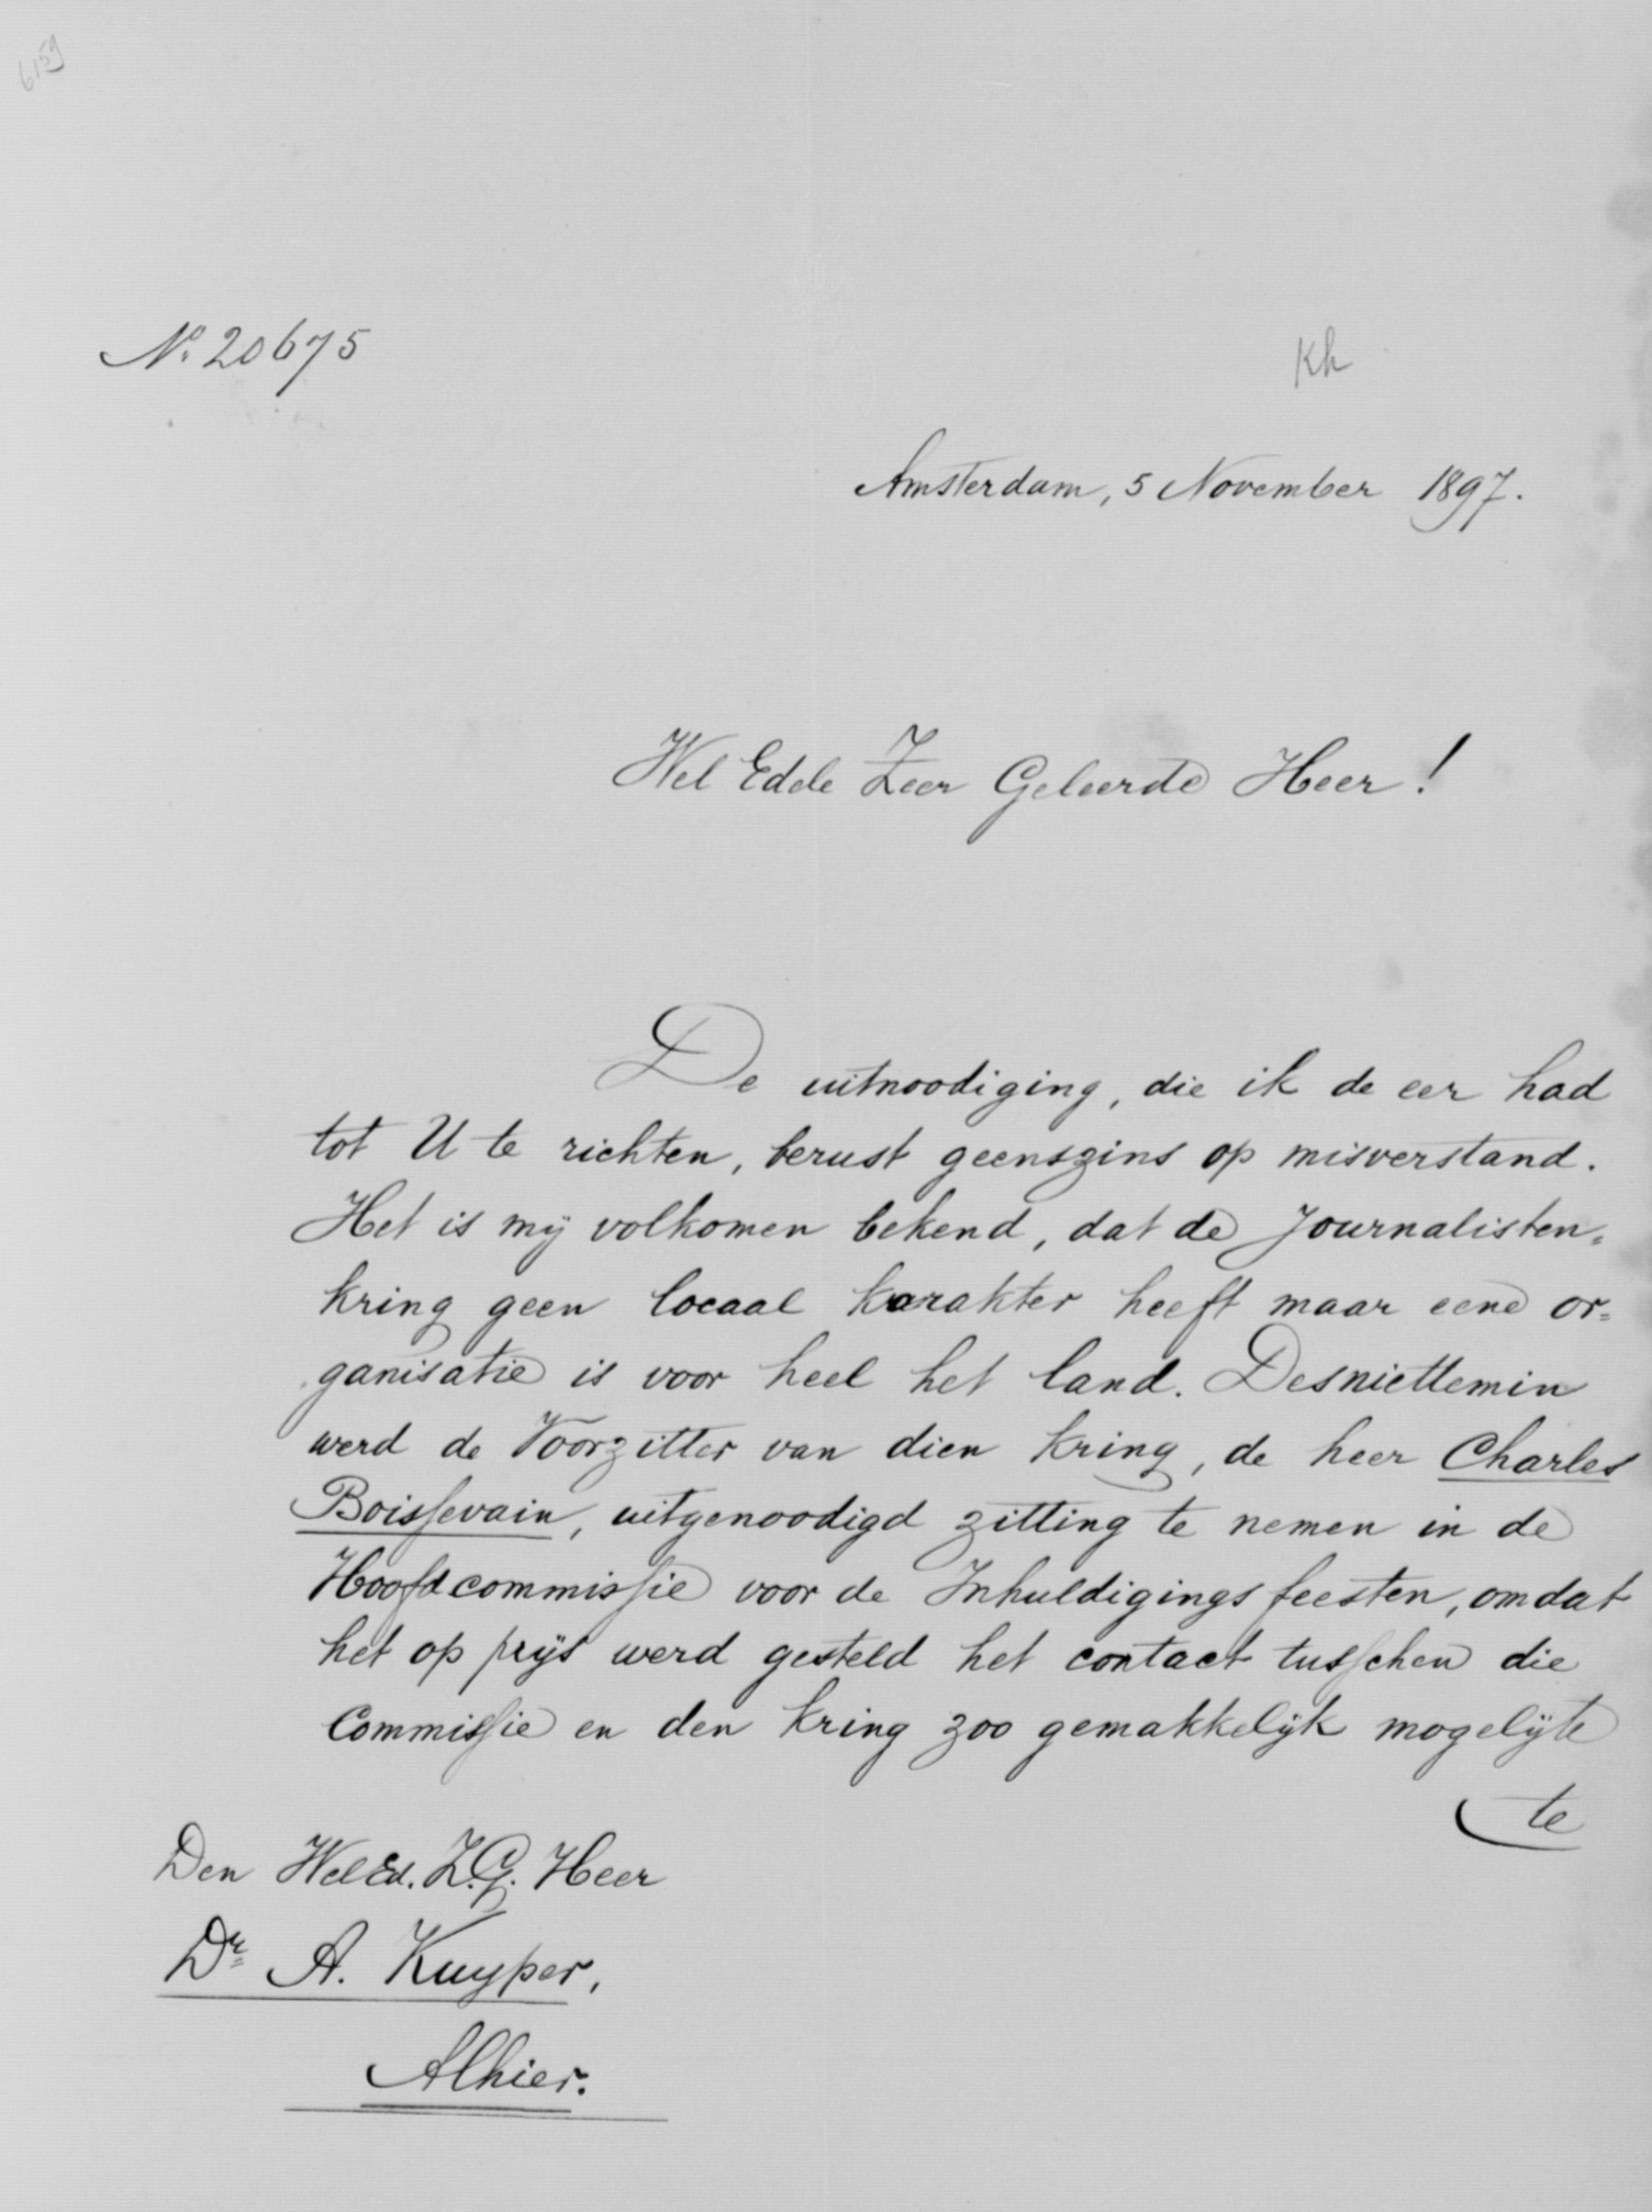 6159
No. 20675
Kh
Amsterdam, 5 November 1897.
Wel Edele Zeer Geleerde Heer!
De uitnoodiging, die ik de eer had
tot U te richten, berust geenszins op misverstand.
Het is mij volkomen bekend, dat de Journalisten=
kring geen locaal karakter heeft maar eene or=
ganisatie is voor heel het land. Desniettemin
werd de Voorzitter van dien Kring, de heer Charles
Boissevain, uitgenoodigd zitting te nemen in de
Hoofdcommissie voor de Inhuldigingsfeesten, omdat
het op prijs werd gesteld het contact tusschen die
Commissie en den Kring zoo gemakkelijk mogelijk
te
Den WelEd. Z.G. Heer
Dr. A. Kuyper,
Alhier.